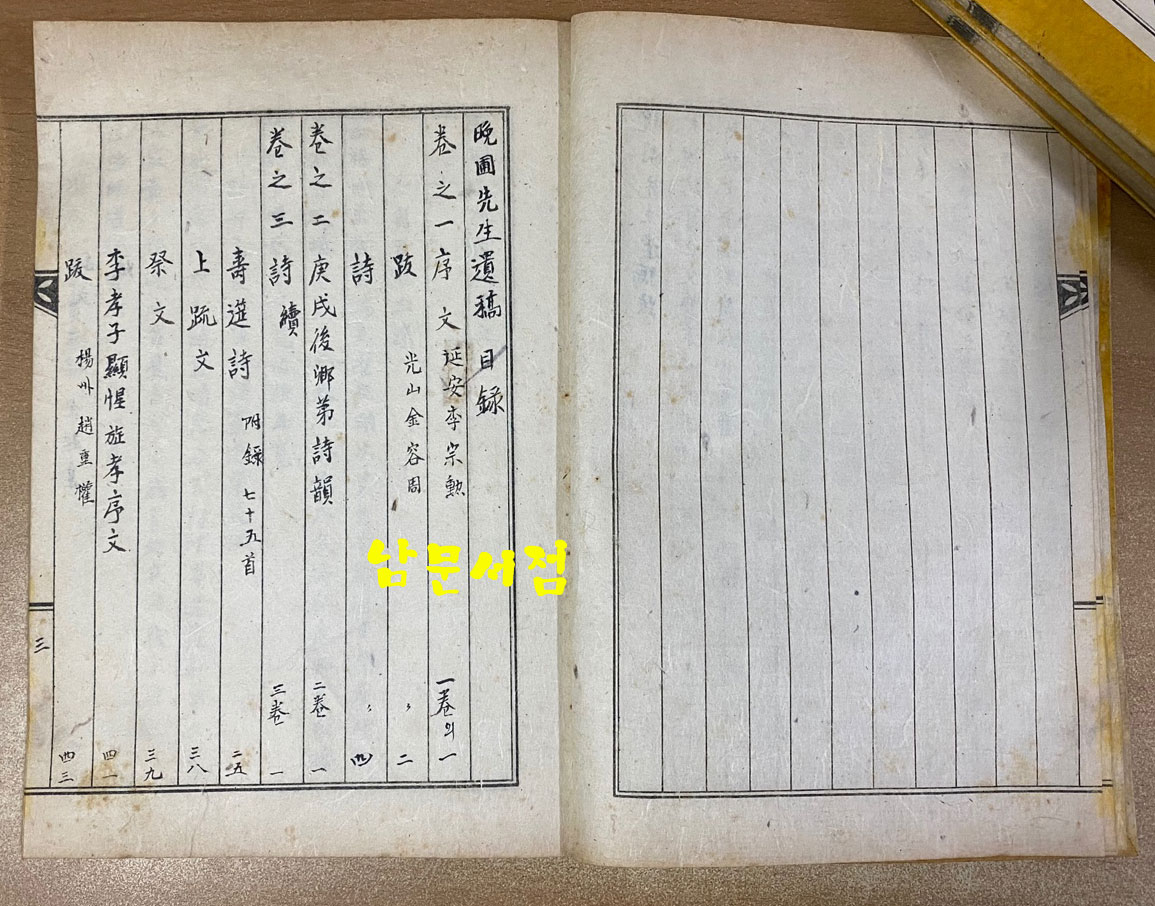 晩圃先生遺稿 目録
卷之一 序文 延安李宗勲 一卷의 一
跋 光山金容周 〃 二
詩 〃 四
卷之二 庚戌後鄕第詩韻 二卷 一
卷之三 詩續 三卷 一
壽筵詩 附録 七十五首 二五
上疏文 三八
祭文 三九
李孝子顯惺旌孝序文 四一
跋 楊州趙重 四三
三
남문서점